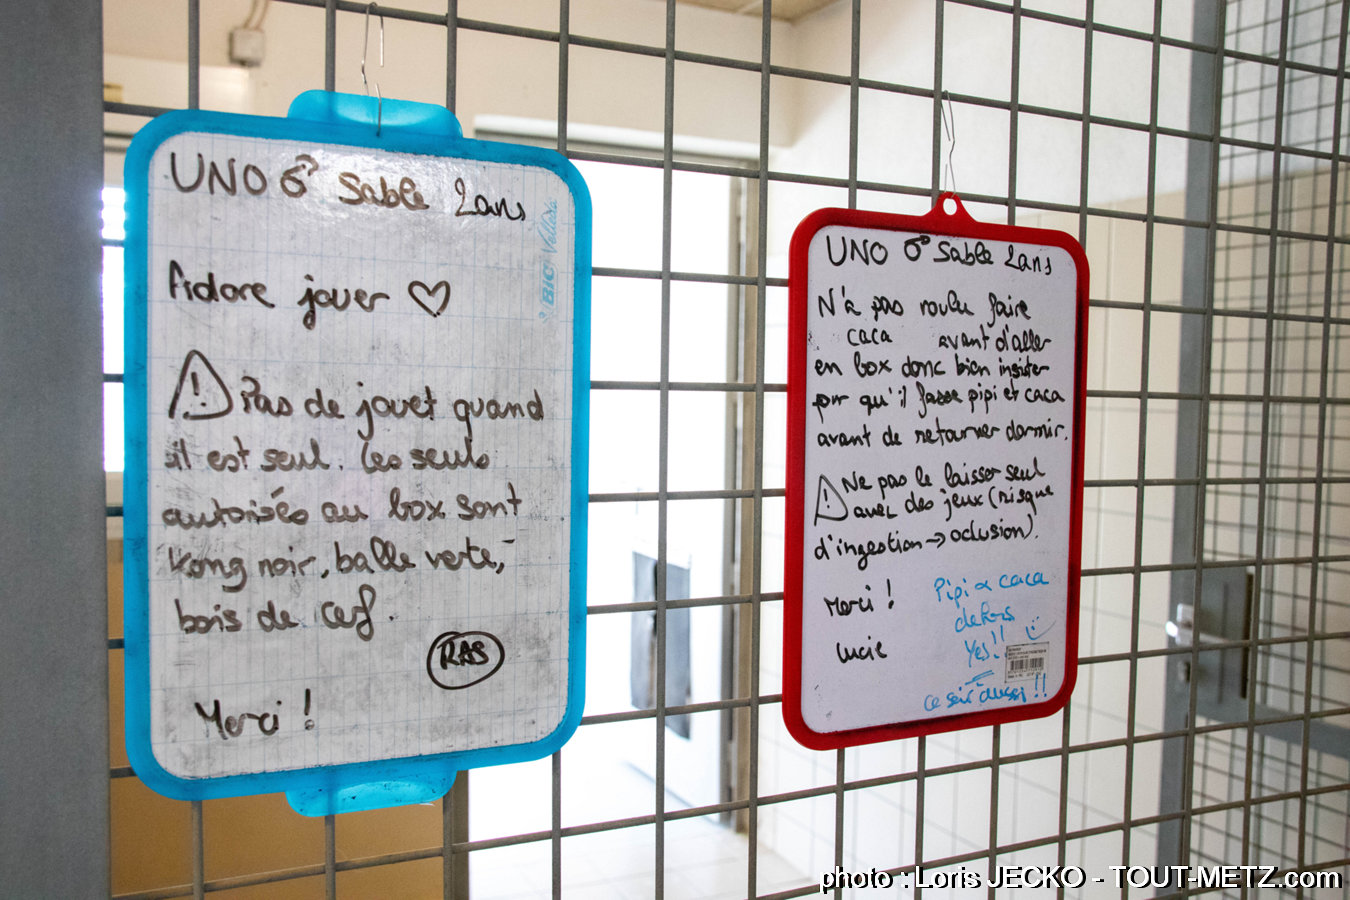 UNO ♂ Sable 2ans
BIC Velleda
Adore jouer ♡
⚠ Pas de jouet quand
il est seul. Les seuls
autorisés au box sont
Kong noir, balle verte,
bois de cerf.
RAS
Merci !
UNO ♂ Sable 2ans
N'a pas voulu faire
caca avant d'aller
en box donc bien insister
pr qu'il fasse pipi et caca
avant de retourner dormir.
⚠ Ne pas le laisser seul
avec des jeux (risque
d'ingestion → oclusion).
Merci !
Lucie
Pipi & caca
dehors
Yes!!
ce soir aussi !!
photo : Loris JECKO - TOUT-METZ.com